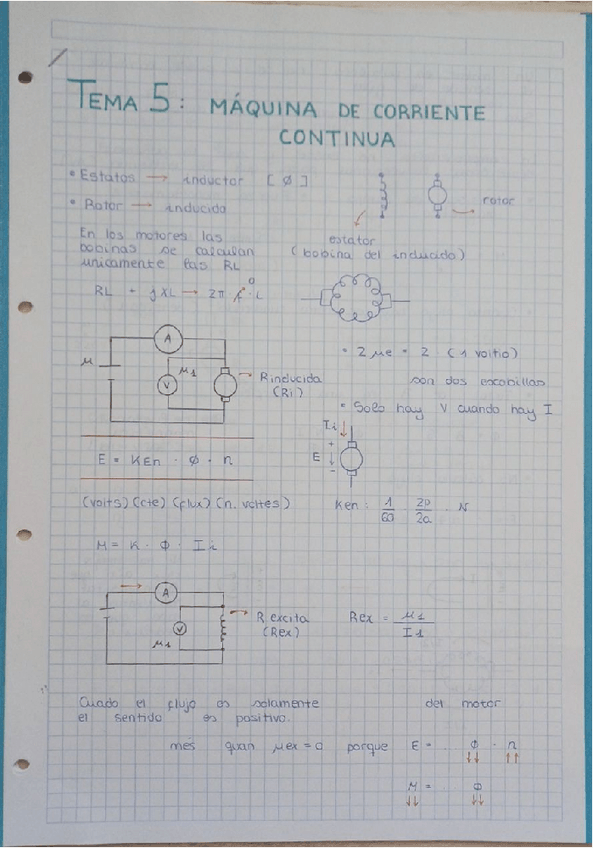 TEMA 5: MÁQUINA DE CORRIENTE
CONTINUA
• Estatos → inductor [ Ø ]
• Rotor → inducido
rotor
estator
(bobina del inducido)
En los motores las
bobinas se calculan
unicamente las RL
RL + jXL → 2π f · L
0
A
μ
μ1
V
R inducida
(Ri)
• 2 μe = 2 · (1 voltio)
son dos escobillas
• Solo hay V cuando hay I
Ii
+
E
-
E = KEn · Ø · n
(volts) (cte) (flux) (n. voltes)
Ken: 1/60 · 2p/2a · N
M = K · Ø · Ii
A
V
μ1
R excita
(Rex)
Rex = μ1/I1
Cuado el flujo es solamente del motor
el sentido es positivo.
més gran μex = 0 porque E = Ø · n
↓↓ ↑↑
M = Ø
↓↓ ↓↓